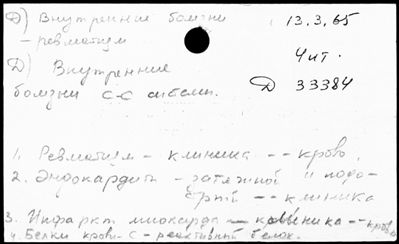 Д) Внутренние болезни
- ревматизм
13.3.65
Чит.
Д) Внутренние
болезни С-С
Д 33384
1. Ревматизм - клиника -- кровь
2. Эндокардит - затяжной и подо-
стрый -- клиника
3. Инфаркт миокарда - клиника -- кровь
4. Белки крови - С - реактивный белок.